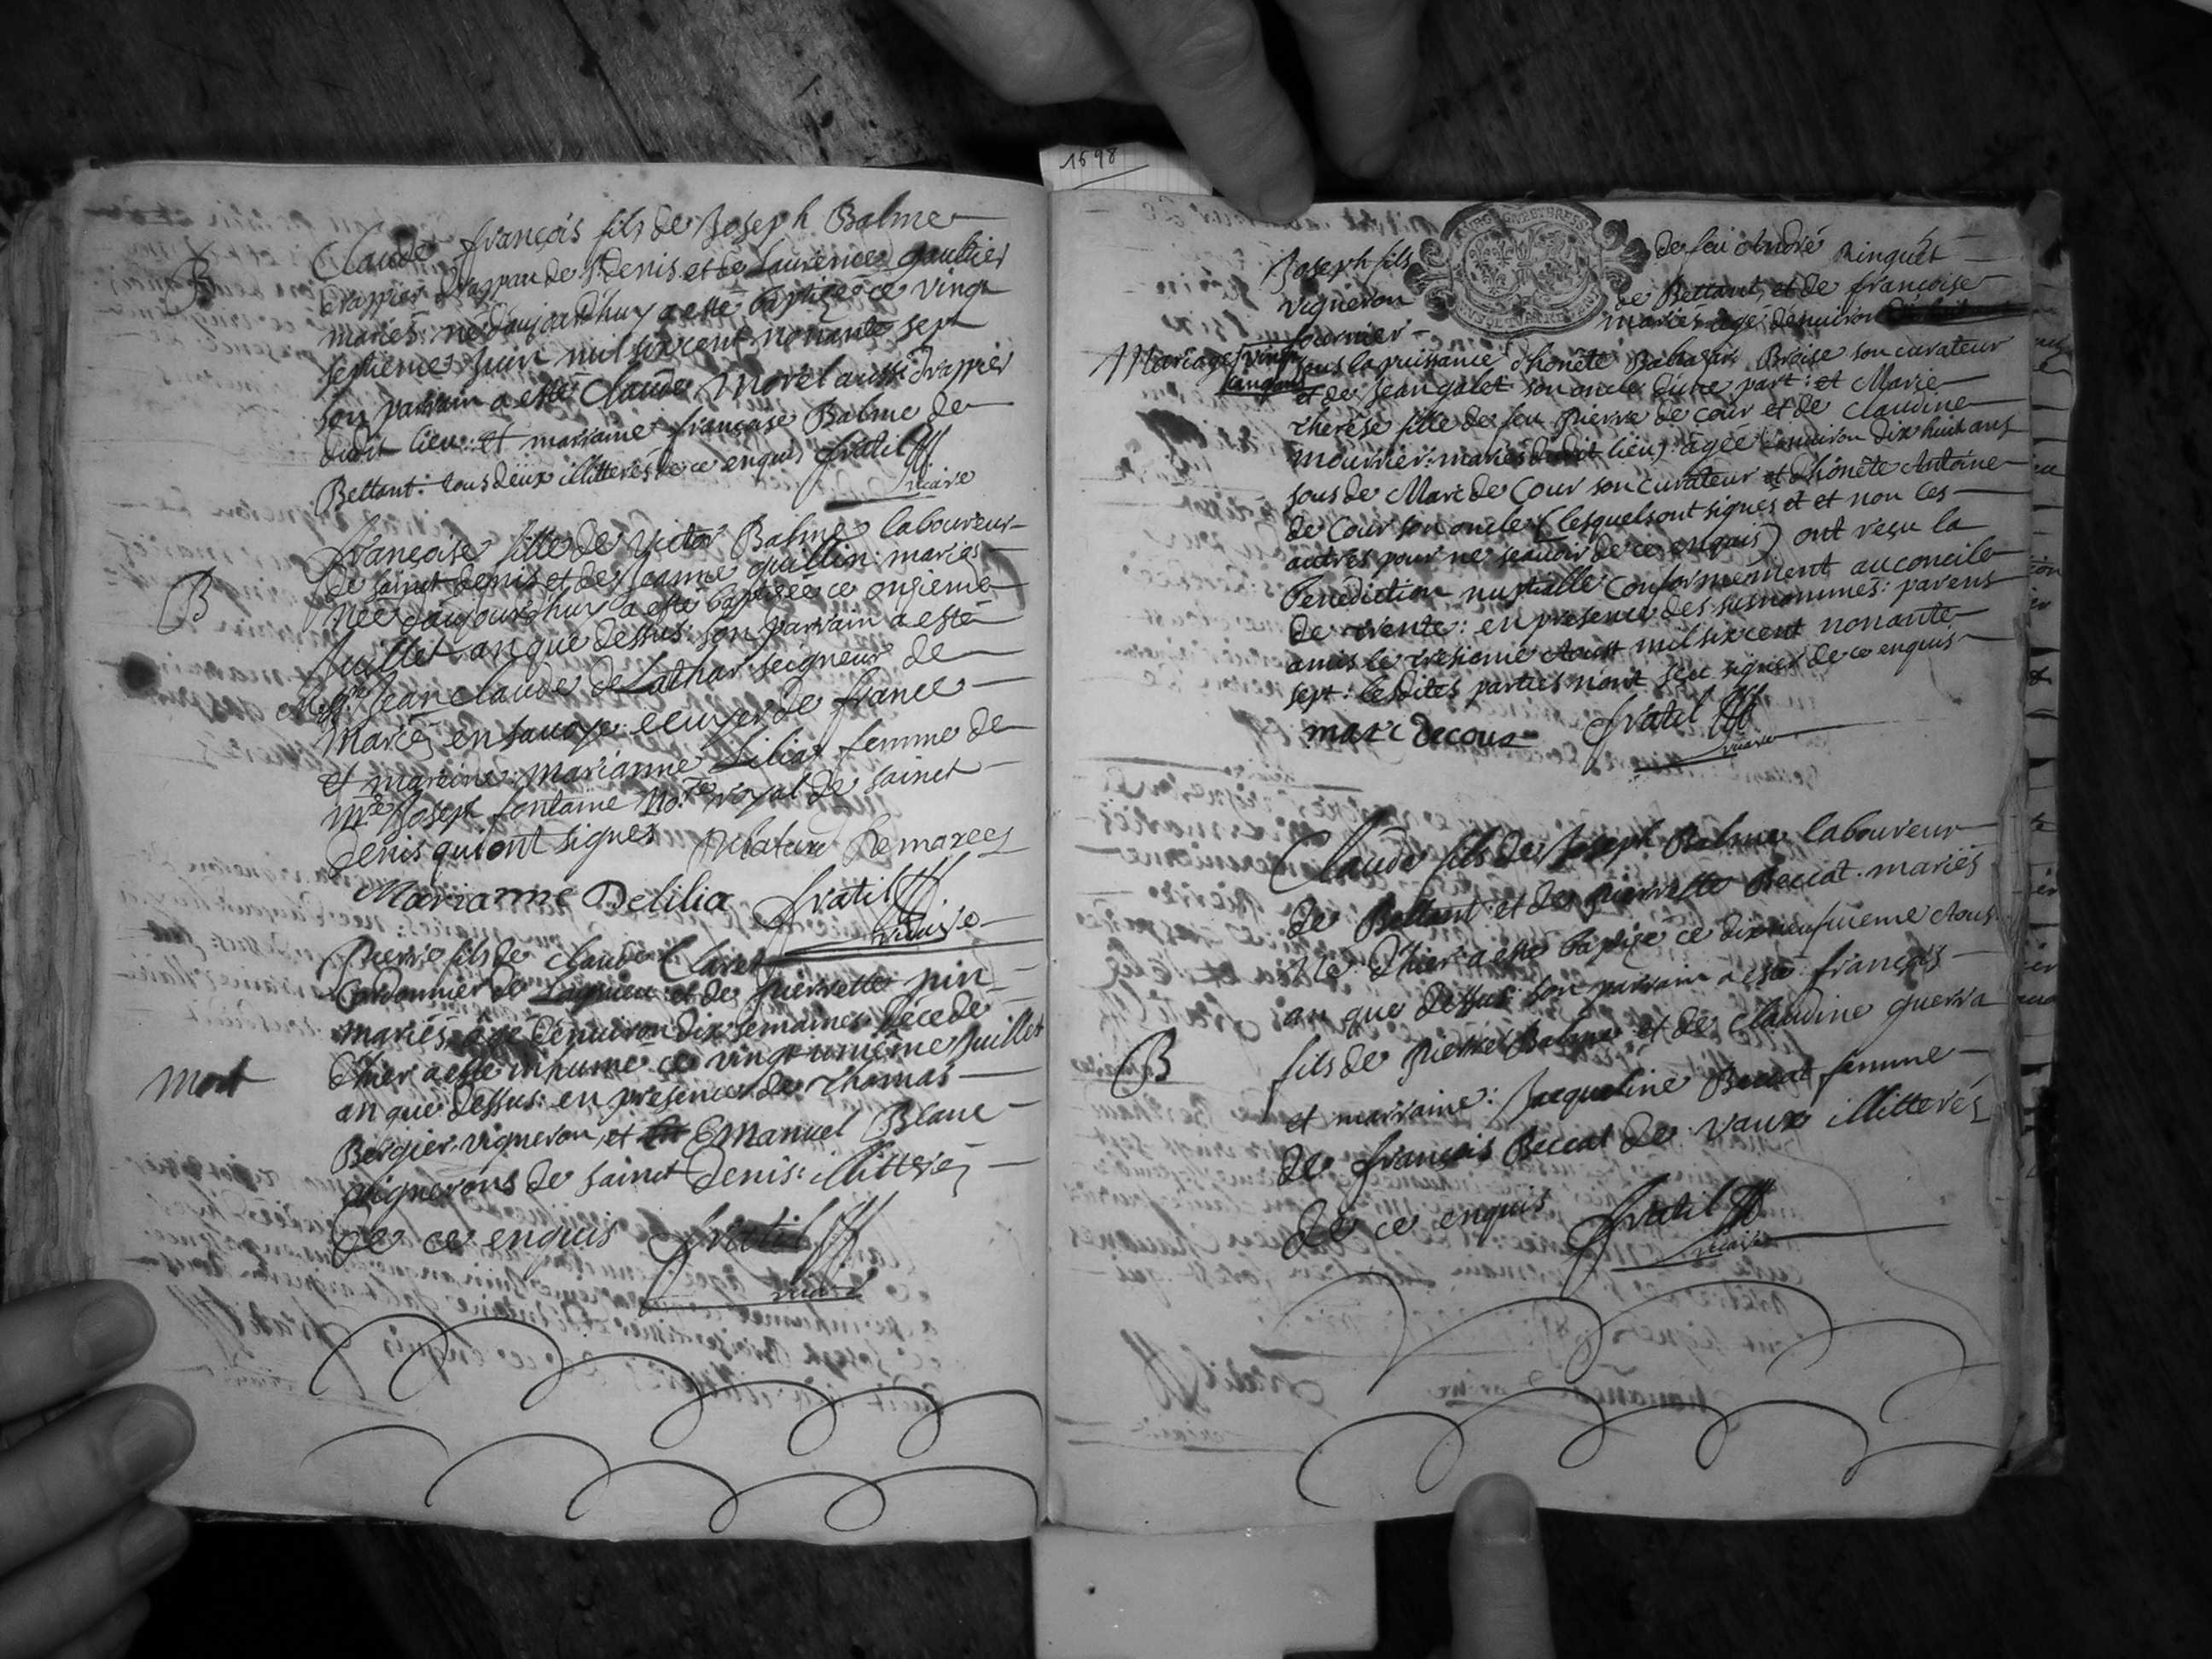 1698
B
Claude françois fils de Joseph Balme
drappier drappan de St Denis et de Laurence gaultier
mariés: né d'aujourdhuy a esté baptizé ce vingt
septieme Juin mil six cent nonante sept
son parrain a esté Claude Morel aussi drappier
dudit lieu: et marraine françoise Balme de
Bettant: tous deux illitterés de ce enquis fratil
vicaire
B
françoise fille de Victor Balme laboureur
de saint denis et de Jeanne guillin: mariés
née d'aujourdhuy a esté baptisée ce onzieme
Juillet an que dessus: son parrain a esté
Jean claude de Lathar seigneur de
mariés en savoye: ecuyer de france
et marraine: marianne Lilias femme de
mre Joseph fontaine No.re royal de sainct
denis qui ont signés
Marianne Delilia fratil
vicaire
Mort
Pierre fils de claude Claret
Cordonnier de Lagnieu et de pierrette pin
mariés âgé d'environ dix semaines décédé
d'hier a esté inhumé ce vingt unieme Juillet
an que dessus: en presence de Thomas
Bergier vigneron, et Emanuel Blanc
vignerons de sainct Denis: illitterés
de ce enquis fratil
vicaire
Joseph fils de feu André ringuet
vigneron de Bettant, et de françoise
fournier mariés âgé d'environ
Mariage vingt cinq ans sous la puissance d'honête Baltazard Broise son curateur
et de Jean galet son oncle d'une part: et Marie
therese fille de feu pierre de cour et de claudine
mourrier: mariés dudit lieu: âgée d'environ dix huit ans
sous de Marc de Cour son curateur et d'honête Antoine
de Cour son oncle (lesquels ont signés et et non les
autres pour ne scavoir de ce enquis) ont reçu la
Benediction nuptialle conformement au concile
de trente: en presence des susnommés: parens
amis le tresieme Aoust mil six cent nonante
sept: lesdites parties n'ont sceu signer de ce enquis
marc decour fratil
vicaire
B
Claude fils de Joseph Balme laboureur
de Bettant et de pierrette Beccat mariés
né d'hier a esté baptizé ce dix neufvieme Aoust
an que dessus: son parrain a esté françois
fils de pierre Balme et de claudine guerra
et marraine: Jacqueline Beccat femme
de françois Beccat de Vaux illitterés
de ce enquis fratil
vicaire